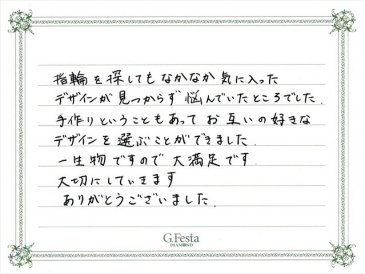 指輪を探してもなかなか気に入った
デザインが見つからず悩んでいたところでした.
手作りということもあってお互いの好きな
デザインを選ぶことができました.
一生物ですので大満足です.
大切にしていきます
ありがとうございました.
G.Festa
DIAMOND